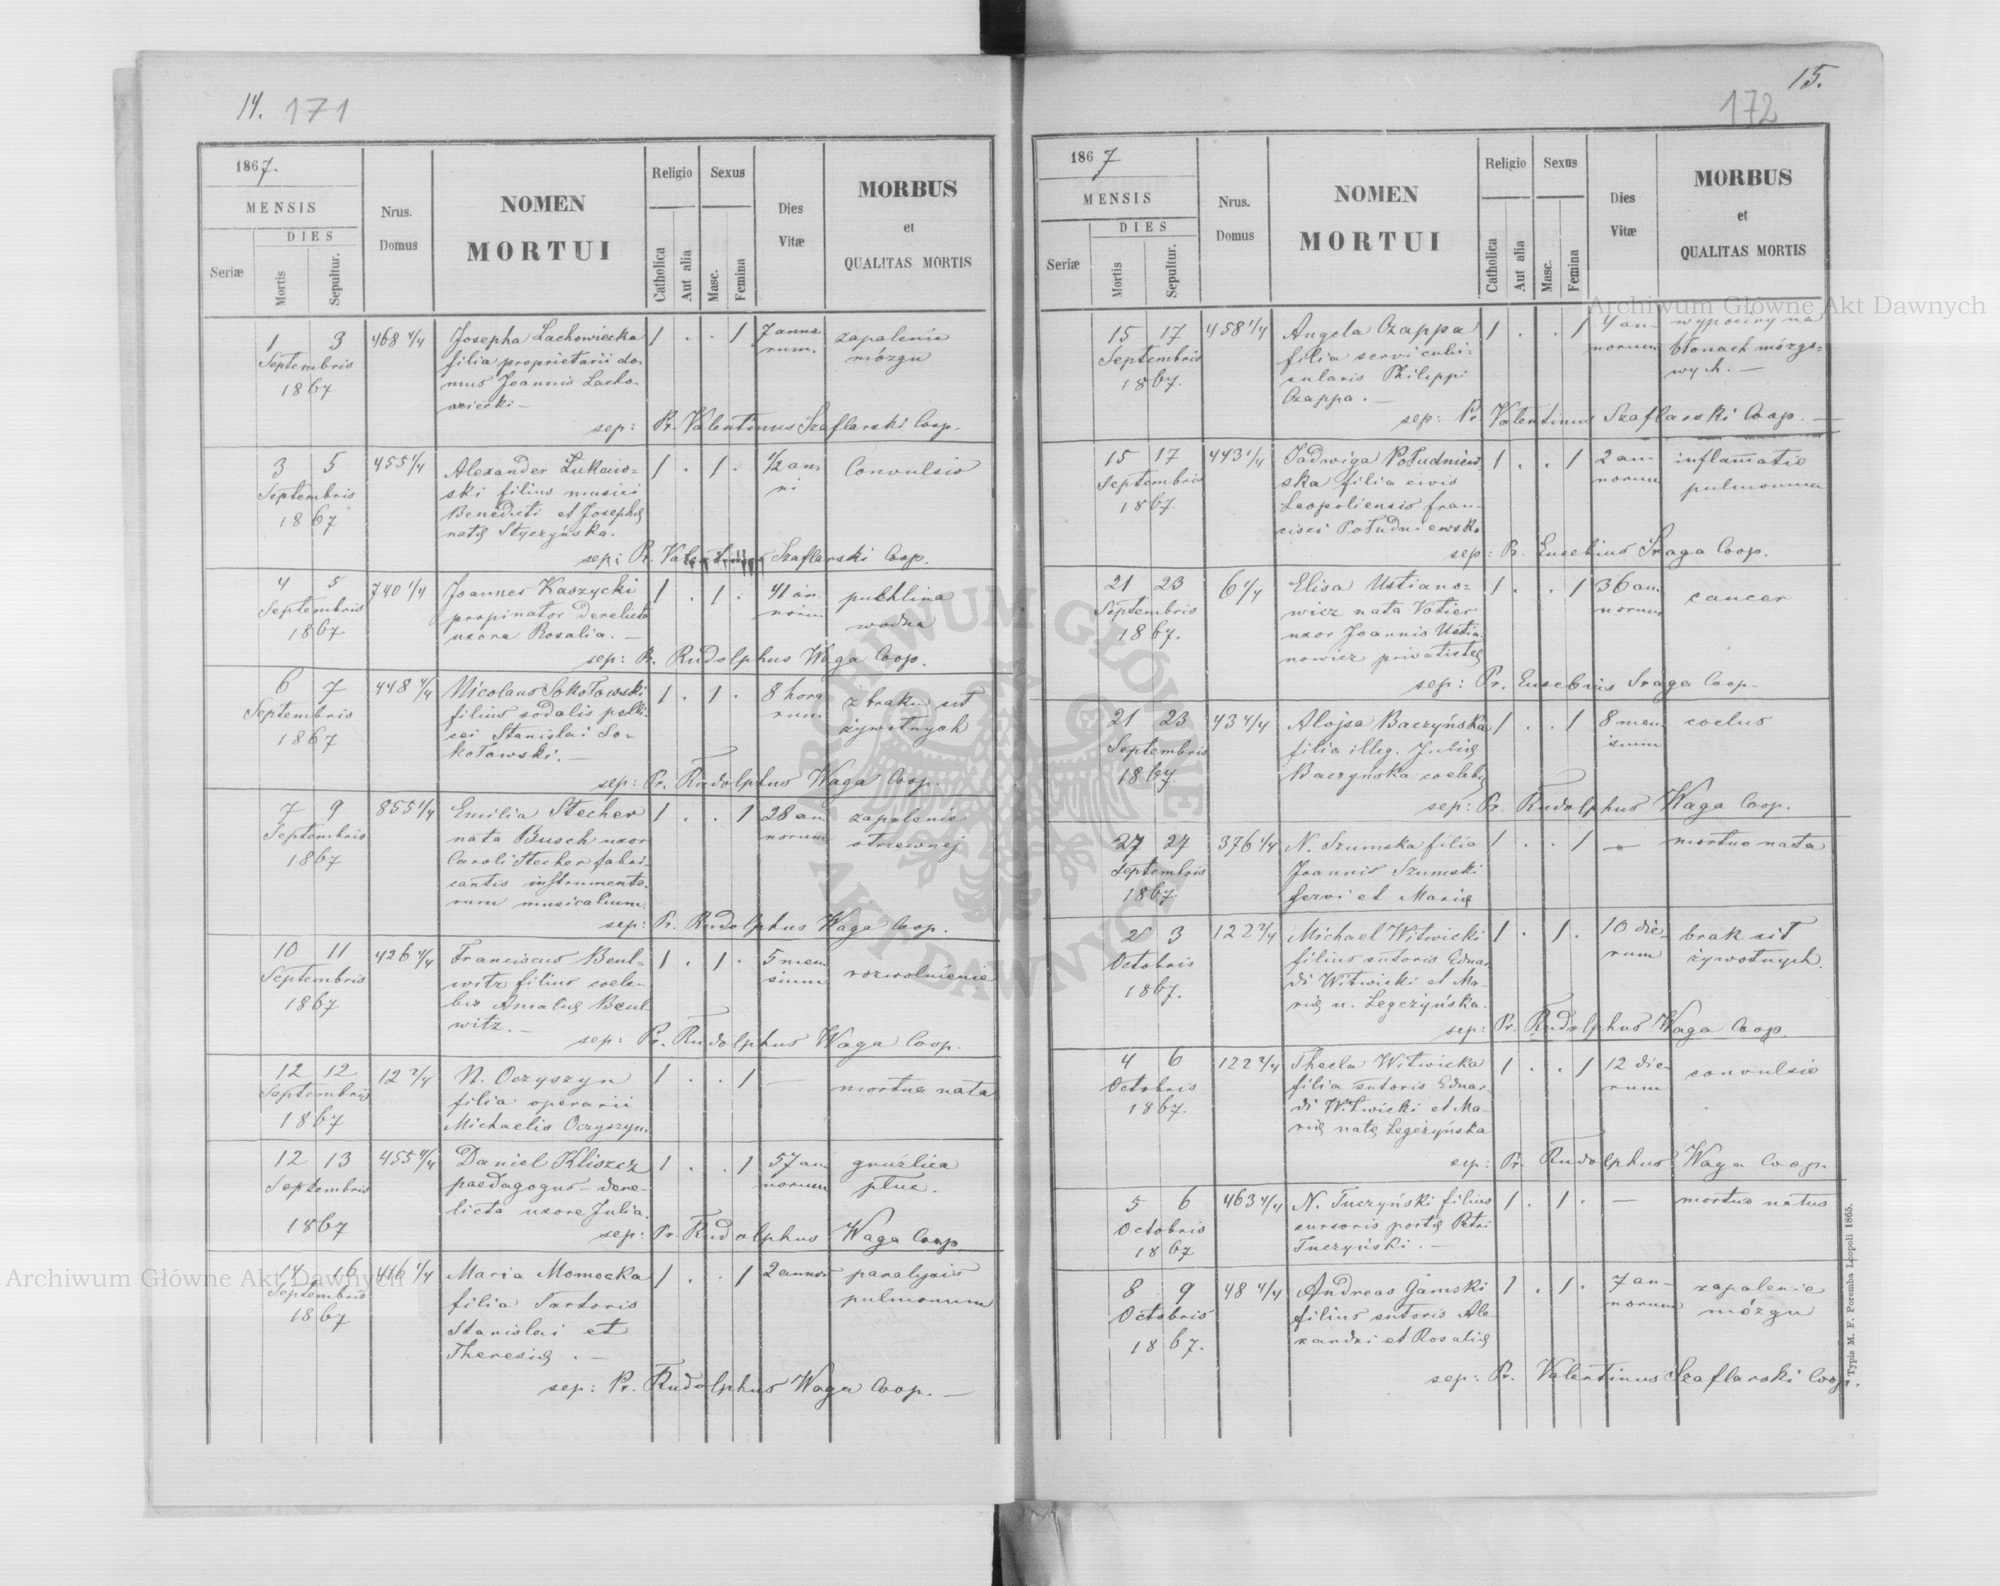 14. 171
1867.
MENSIS
DIES
Seriæ
Mortis
Sepultur.
Nrus.
Domus
NOMEN
MORTUI
Religio
Catholica
Aut alia
Sexus
Masc.
Femina
Dies
Vitæ
MORBUS
et
QUALITAS MORTIS
1 3 468 4/4 Josepha Lachowiecka 1 . . 1 7 anno- zapalenie
Septembris filia proprietarii do- rum. mózgu
1867 mus Joannis Lacho-
wiecki —
sep: Pr. Valentinus Szaflarski Coop.
3 5 455 4/4 Alexander Łukaw- 1 . 1 . 1/2 an- Convulsio
Septembris ski filius musici ni
1867 Benedicti et Josephę
natę Styczyńska.
sep: Pr. Valentinus Szaflarski Coop.
4 5 740 4/4 Joannes Kaszycki 1 . 1 . 41 an- puchlina
Septembris propinator derelicta norum wodna
1867 uxore Rosalia. —
sep: Pr. Rudolphus Waga Coop.
6 7 448 4/4 Nicolaus Sokołowski 1 . 1 . 8 hora z braku sił
Septembris filius sodalis pelli- rum żywotnych
1867 cei Stanislai So-
kołowski. —
sep: Pr. Rudolphus Waga Coop.
7 9 855 4/4 Emilia Stecher 1 . . 1 28 an- zapalenie
Septembris nata Busch uxor norum otrzewnej
1867 Caroli Stecher fabri-
cantis instrumento-
rum musicalium.
sep: Pr. Rudolphus Waga Coop.
10 11 426 4/4 Franciscus Beul- 1 . 1 . 5 men- rozwolnienie
Septembris witz filius coele- sium
1867 bis Amalię Beul-
witz. —
sep: Pr. Rudolphus Waga Coop.
12 12 12 2/4 N. Oczyszyn 1 . . 1 — mortua nata
Septembris filia operarii
1867 Michaelis Oczyszyn.
12 13 455 4/4 Daniel Kliszcz 1 . . 1 57 an- gruźlica
Septembris paedagogus - dere- norum płuc.
1867 licta uxore Julia.
sep: Pr. Rudolphus Waga Coop.
14 16 416 4/4 Maria Momocka 1 . . 1 2 anno- paralysis
Septembris filia Sartoris pulmonum
1867 Stanislai et
Theresię . —
sep: Pr. Rudolphus Waga Coop. —
15.
172
1867
MENSIS
DIES
Seriæ
Mortis
Sepultur.
Nrus.
Domus
NOMEN
MORTUI
Religio
Catholica
Aut alia
Sexus
Masc.
Femina
Dies
Vitæ
MORBUS
et
QUALITAS MORTIS
15 17 458 4/4 Angela Czappa 1 . . 1 4 an- wypociny na
Septembris filia servi cubi- norum błonach mózgo-
1867. cularis Philippi wych. —
Czappa. —
sep: Pr Valentinus Szaflarski Coop. —
15 17 443 4/4 Jadwiga Południew 1 . . 1 2 an- inflamatio
Septembris ska filia civis norum pulmonum
1867 Leopoliensis fran-
cisci Południewski
sep: Pr. Eusebius Sraga Coop.
21 23 6 4/4 Elisa Ustiano- 1 . . 1 36 an- cancer
Septembris wicz nata Votier norum
1867. uxor Joannis Ustia-
nowicz privatistę
sep: Pr. Eusebius Sraga Coop.
21 23 43 4/4 Alojsa Baczyńska 1 . . 1 8 men- coelus
Septembris filia illeg. Julię sium
1867 Baczyńska coelebs
sep: Pr. Rudolphus Waga Coop.
27 27 376 4/4 N. Szumska filia 1 . . 1 — mortua nata
Septembris Joannis Szumski
1867 servi et Marię
2 3 122 2/4 Michael Witwicki 1 . 1 . 10 die- brak sił
Octobris filius sutoris Eduar- rum żywotnych.
1867. di Witwicki et Ma-
rię n. Legeżyńska.
sep: Pr. Rudolphus Waga Coop.
4 6 122 2/4 Thecla Witwicka 1 . . 1 12 die- convulsio
Octobris filia sutoris Eduar- rum
1867. di Witwicki et Ma-
rię natę Legeżyńska
sep: Pr. Rudolphus Waga Coop.
5 6 463 4/4 N. Tuczyński filius 1 . 1 . — mortuo natus
Octobris cursoris postę Petri
1867 Tuczyński. —
8 9 48 4/4 Andreas Gamski 1 . 1 . 7 an- zapalenie
Octobris filius sutoris Ale- norum mózgu
1867. xandri et Rosalię
sep: Pr. Valentinus Szaflarski Coop.
Typis M. F. Poremba Leopoli 1865.
Archiwum Główne Akt Dawnych
Archiwum Główne Akt Dawnych
ARCHIWUM GŁÓWNE
AKT DAWNYCH